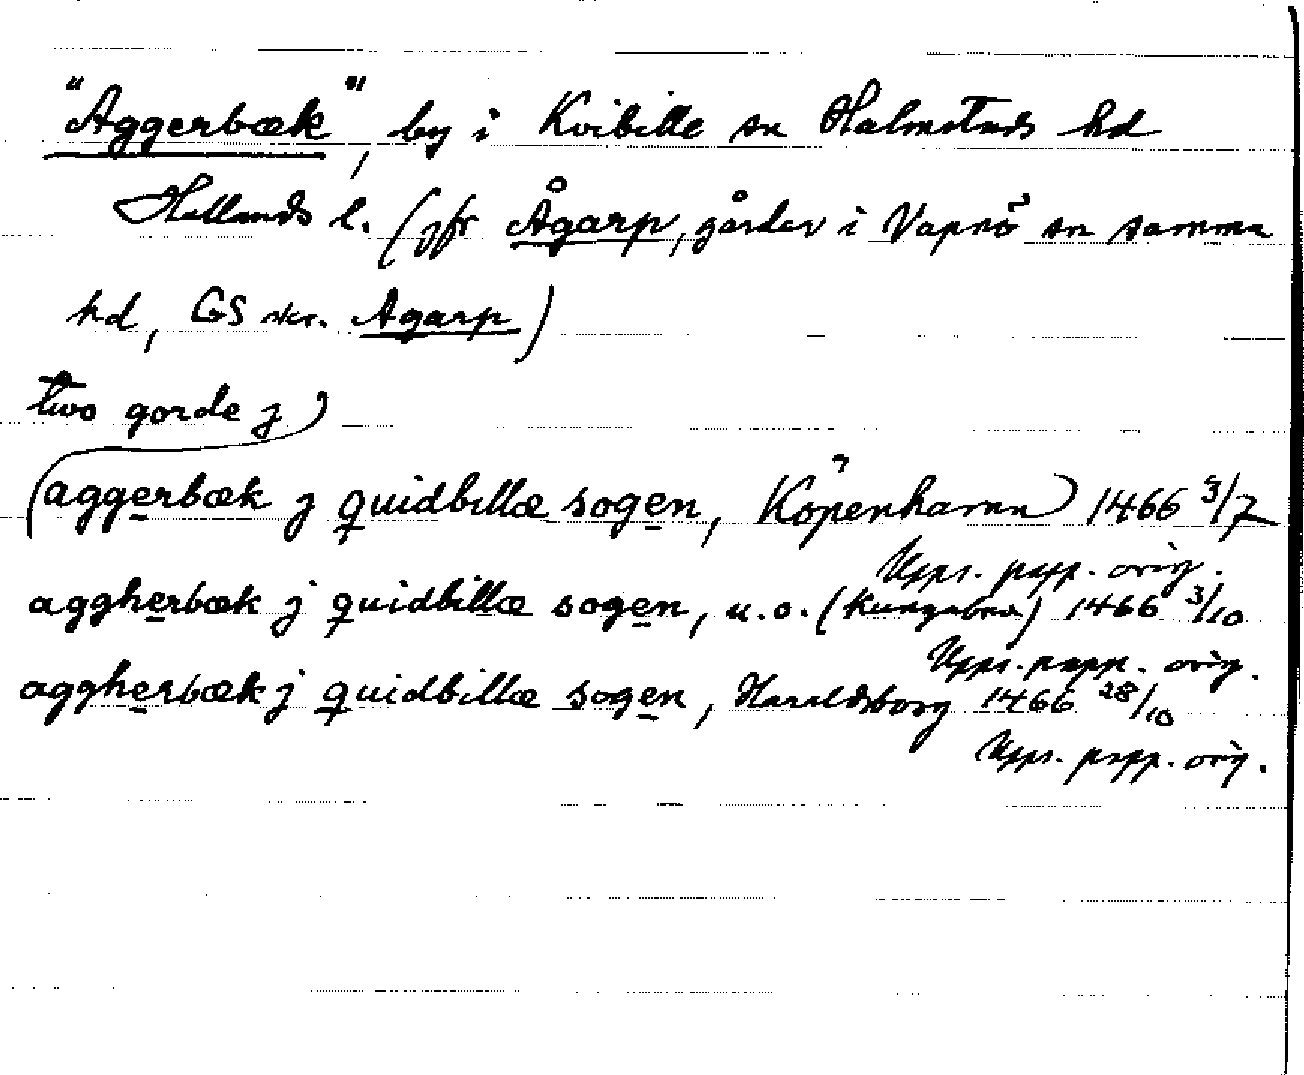 "Aggerbæk", by i Kvibille sn Halmstads hd
Hallands l. (jfr Ågarp, gårdar i Vapnö sn samma
hd, GS skr. Agarp)
two gorde j
aggerbæk j quidbillæ sogen, Köpenhamn 1466 3/7
Upps. papp. orig.
aggherbæk j quidbillæ sogen, u.o. (Kungsbro) 1466 3/10
Upps. papp. orig.
aggherbæk j quidbillæ sogen, Haraldsborg 1466 28/10
Upps. papp. orig.